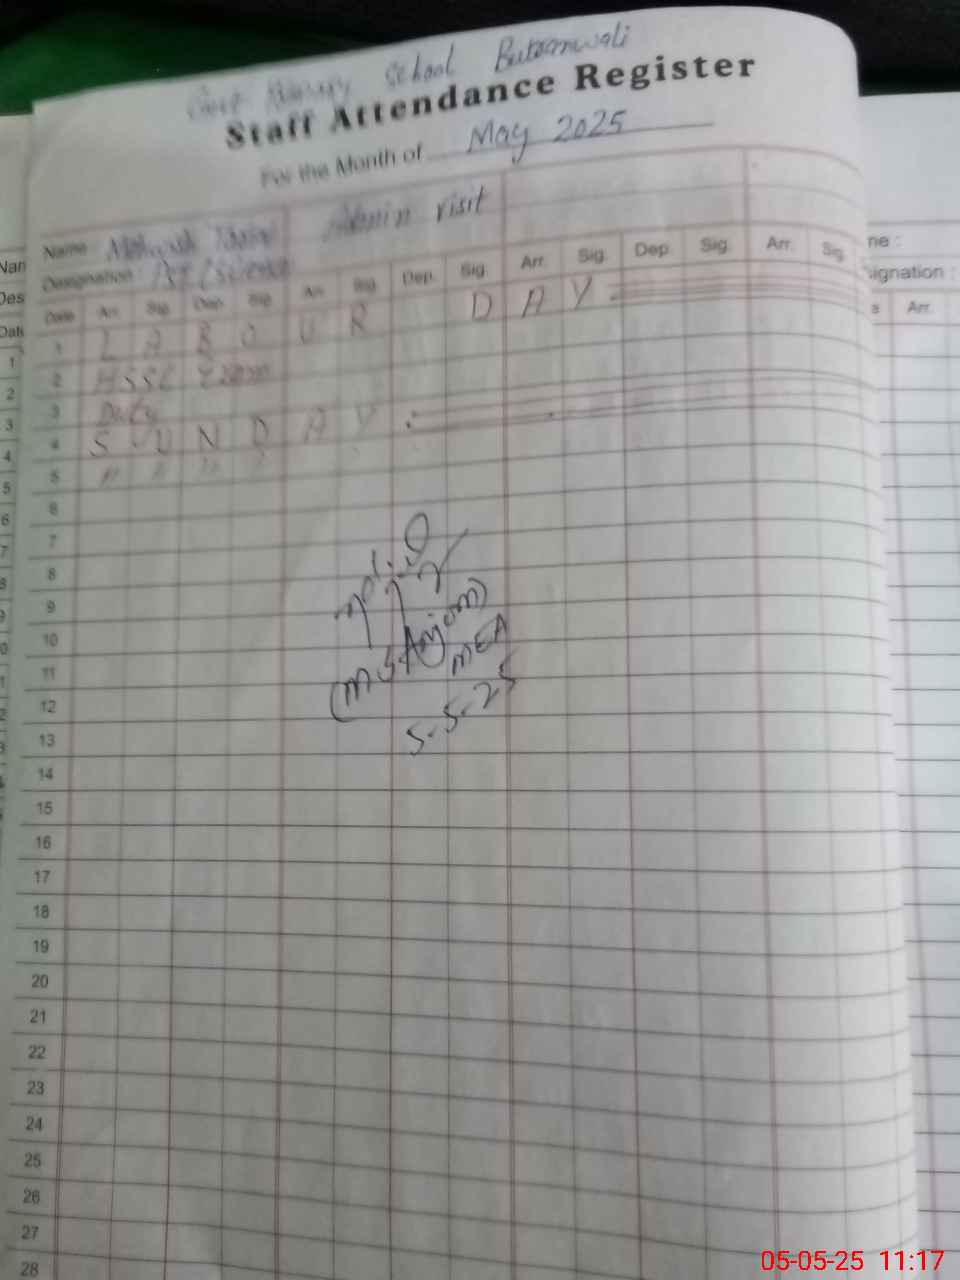 Govt Primary School Butranwali
Staff Attendance Register
For the Month of May 2025
Name Admin visit
Designation PST (Science
Date Arr. Sig. Dep. Sig. Arr. Sig. Dep. Sig. Arr. Sig. Dep. Sig. Arr. Sig.
1 L A B O U R D A Y
2 HSSC Exam
3 Duty
4 S U N D A Y
5
6
7
8
9
10
11
12
13
14
15
16
17
18
19
20
21
22
23
24
25
26
27
28
(M S Anjom)
MEA
5-5-25
Nan
Des
Dat
1
2
3
4
5
6
7
8
me :
signation :
Arr.
05-05-25 11:17